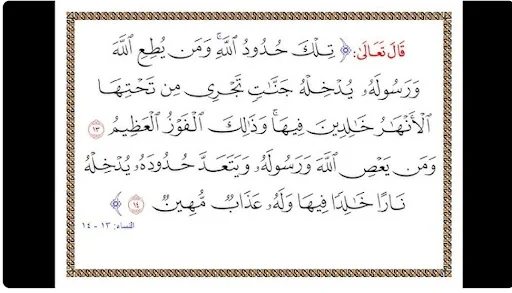 قَالَ تَعَالَىٰ: ﴿ تِلْكَ حُدُودُ ٱللَّهِ ۚ وَمَن يُطِعِ ٱللَّهَ
وَرَسُولَهُۥ يُدْخِلْهُ جَنَّٰتٍ تَجْرِى مِن تَحْتِهَا
ٱلْأَنْهَٰرُ خَٰلِدِينَ فِيهَا ۚ وَذَٰلِكَ ٱلْفَوْزُ ٱلْعَظِيمُ ١٣
وَمَن يَعْصِ ٱللَّهَ وَرَسُولَهُۥ وَيَتَعَدَّ حُدُودَهُۥ يُدْخِلْهُ
نَارًا خَٰلِدًا فِيهَا وَلَهُۥ عَذَابٌ مُّهِينٌ ١٤ ﴾
النساء: ١٣ - ١٤